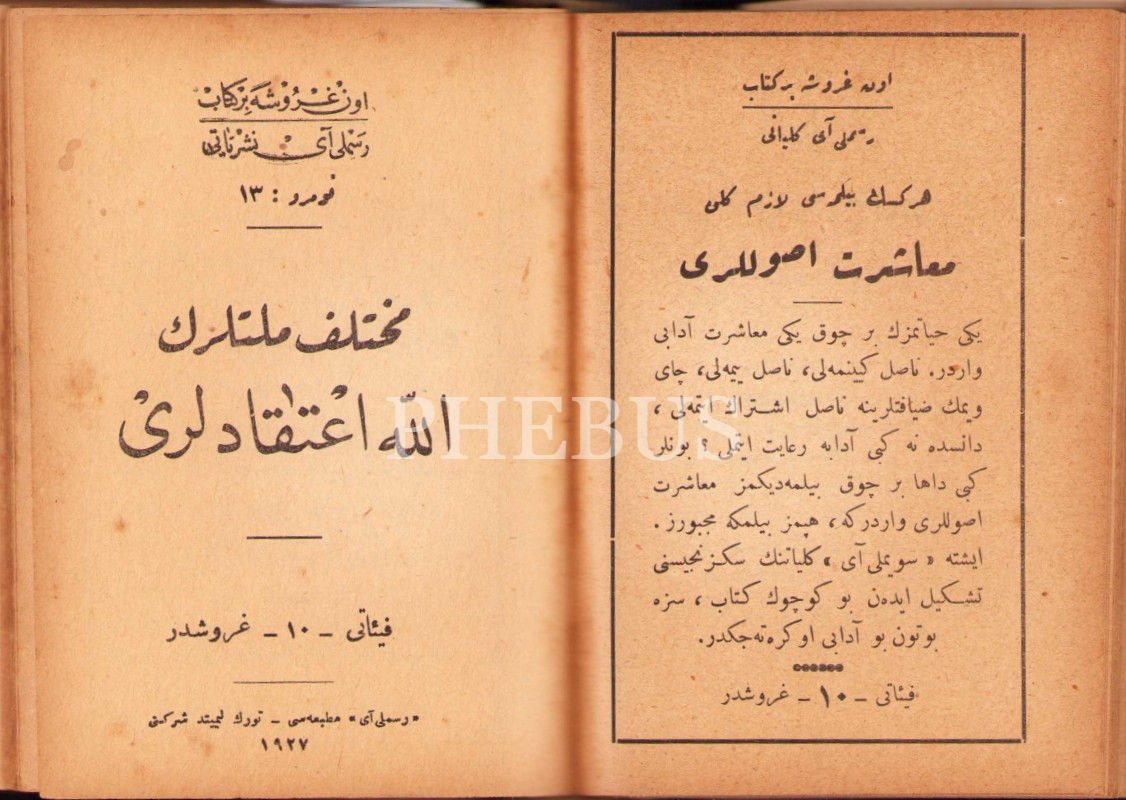 اون غروشه بر كتاب
رسملى آى كلياتى
هركسك بيلمه‌سى لازم كلن
معاشرت اصوللرى
يكى حياتمزك بر چوق يكى معاشرت آدابى
واردر. ناصل كيينمه‌لى، ناصل ييمه‌لى، چاى
ويمك ضيافتلرينه ناصل اشتراك ايتمه‌لى ،
دانسده نه كبى آدابه رعايت ايتملى ؟ بونلر
كبى داها بر چوق بيلمه‌ديكمز معاشرت
اصوللرى واردركه، هپمز بيلمكه مجبورز.
ايشته « سويملى آى » كلياتنك سكزنجيسنى
تشكيل ايده‌ن بو كوچوك كتاب ، سزه
بوتون بو آدابى اوكره‌ته‌جكدر.
فيئاتى ـ ١٠ ـ غروشدر
اون غروشه بر كتاب
رسملى آى نشرياتى
نومرو : ١٣
مختلف ملتلرك
الله اعتقادلرى
فيئاتى ـ ١٠ ـ غروشدر
« رسملى آى » مطبعه‌سى ـ تورك ليميتد شركتى
١٩٢٧
PHEBUS